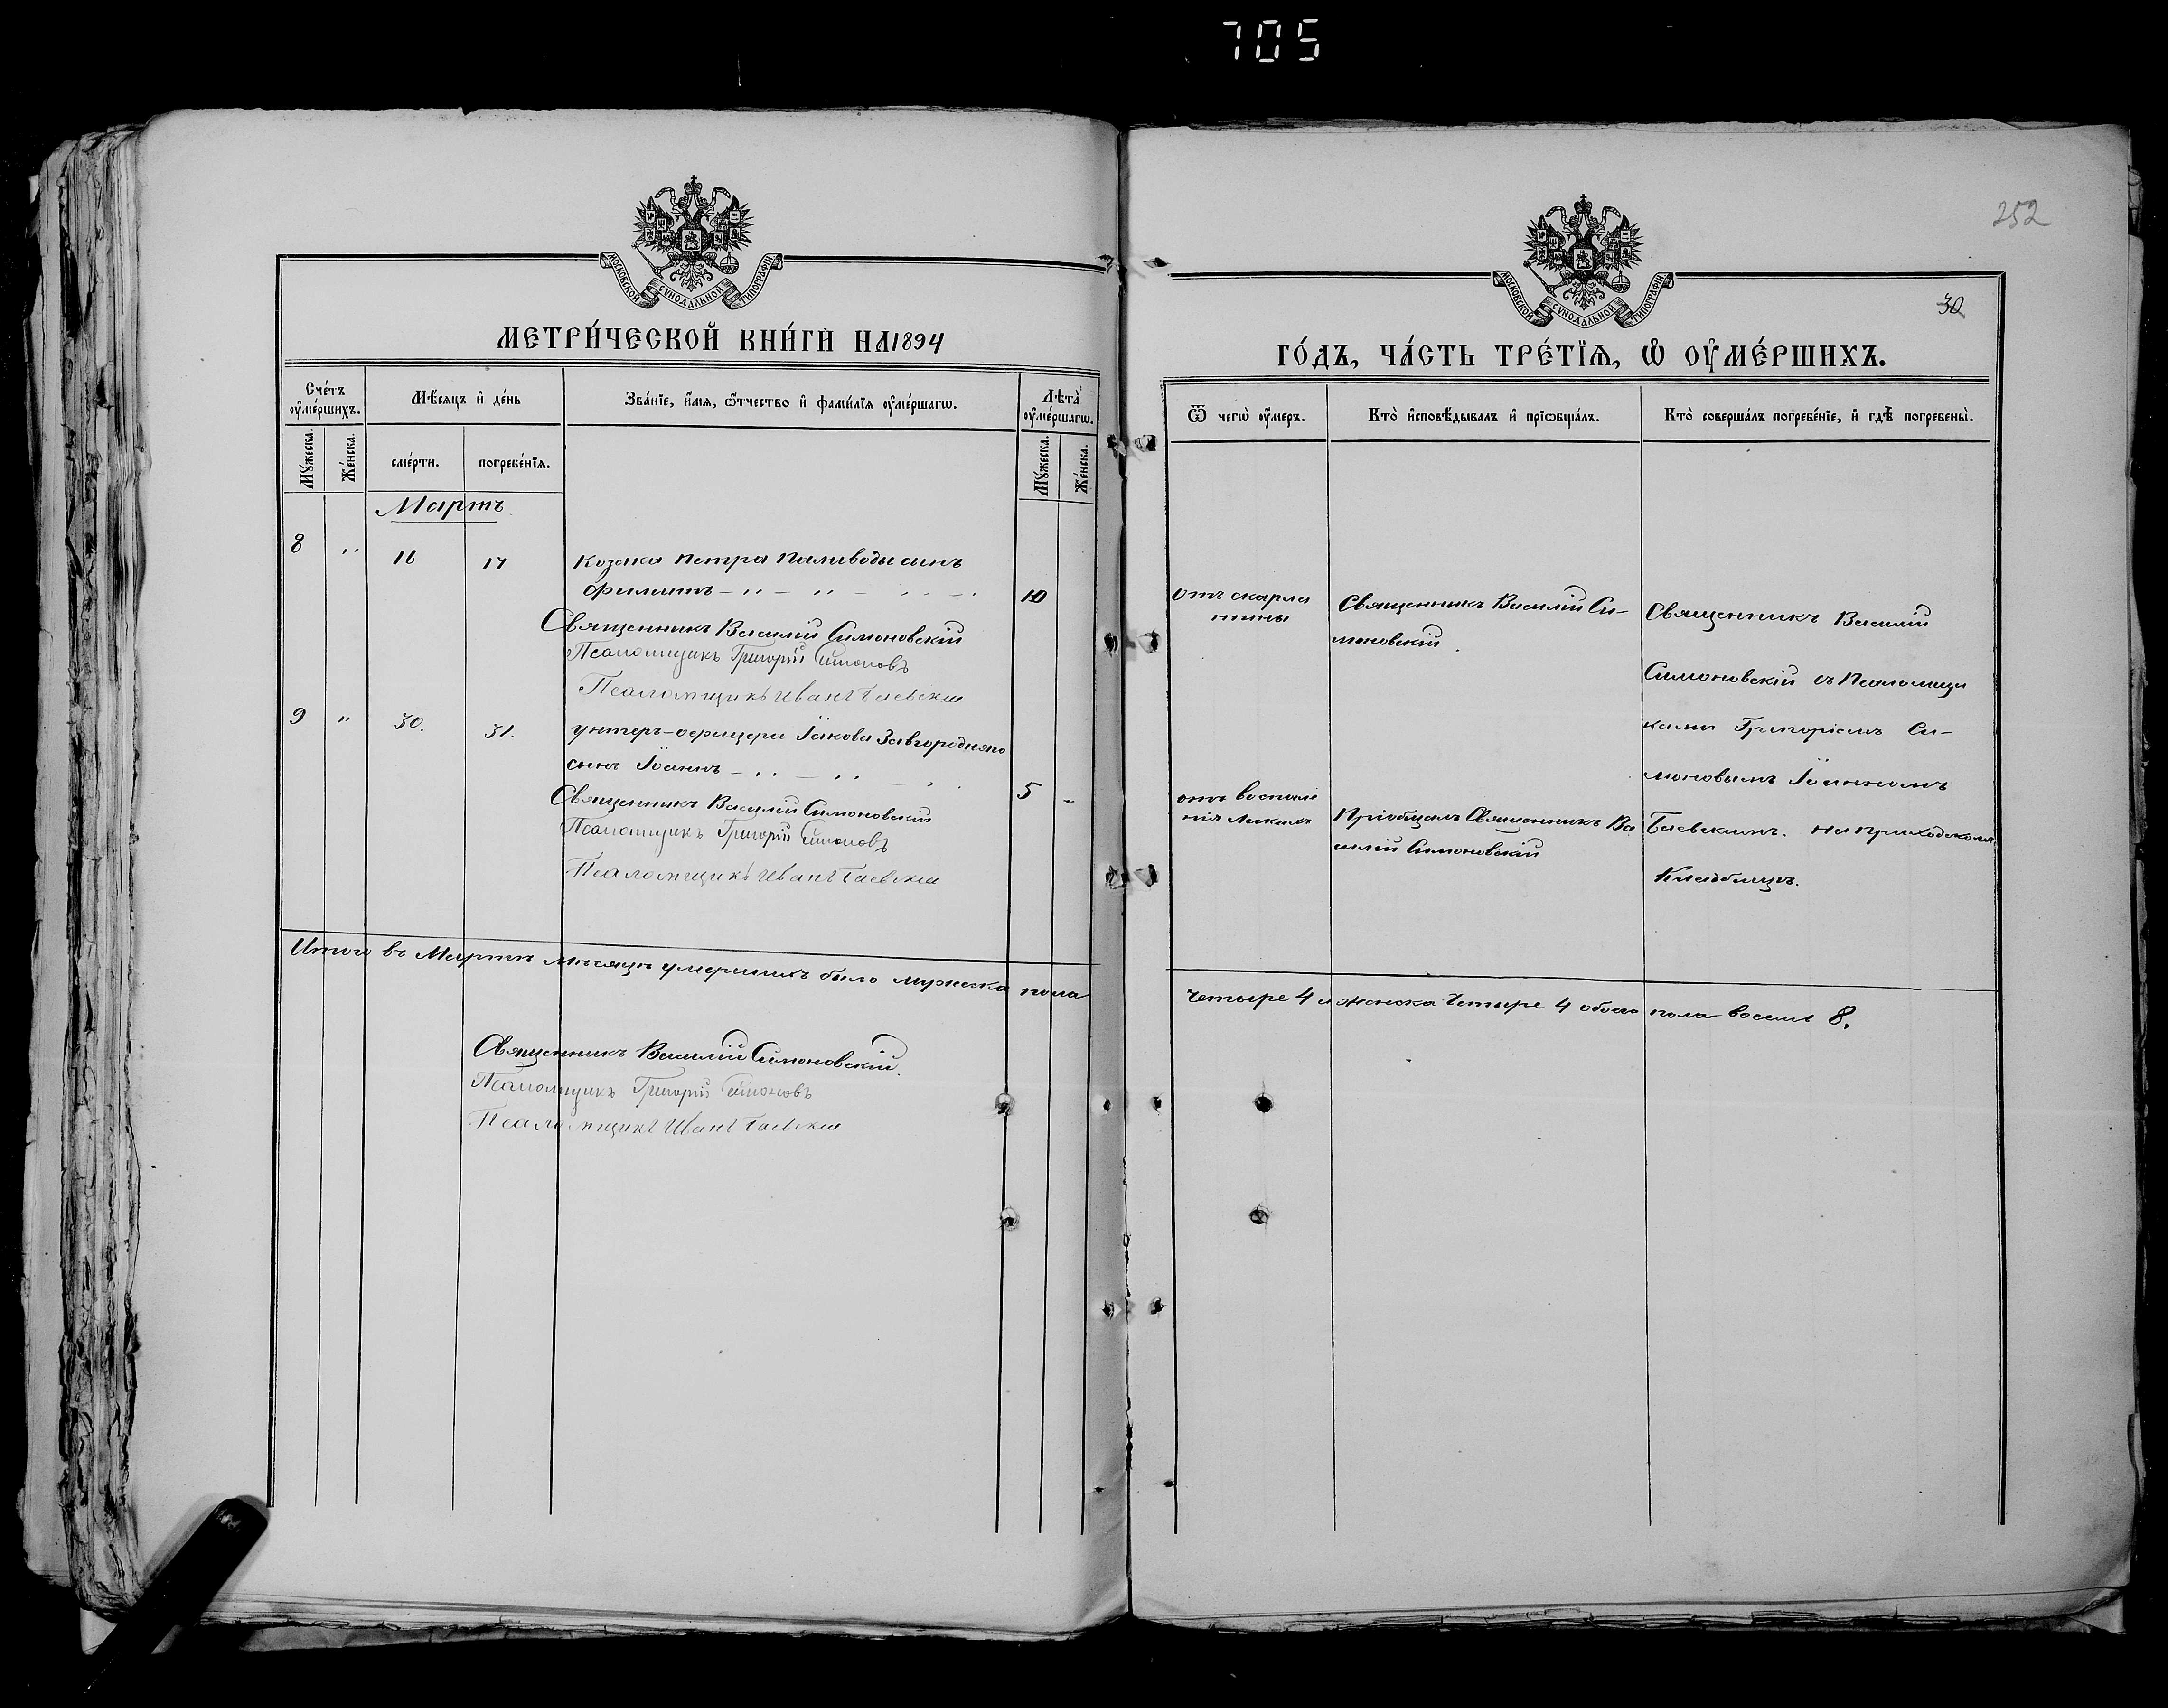 705
252
30
МОСКОВСКОЙ СѴНОДАЛЬНОЙ ТИПОГРАФІИ
МЕТРИ́ЧЕСКОЙ КНИ́ГИ НА 1894
Сче́тъ оу҆ме́ршихъ.
Мѣ́сяцъ и҆ де́нь
Зва́нїе, и҆́мя, ѻ҆́тчество и҆ фами́лїя оу҆ме́ршагѡ.
Лѣ̀та оу҆ме́ршагѡ.
Мꙋ́жеска.
Же́нска.
сме́рти.
погребе́нїя.
Мꙋ́жеска.
Же́нска.
Мартъ
8 " 16 17 Козака Петра Паливоды сынъ
Филиппъ - " - " - " - 10
Священникъ Василій Симоновскій
Псаломщикъ Григорій Симоновъ
Псаломщикъ Иванъ Баевскій
9 " 30. 31. унтеръ-офицера Іакова Завгородняго
сынъ Іоаннъ - " - " - 5 -
Священникъ Василій Симоновскій
Псаломщикъ Григорій Симоновъ
Псаломщикъ Иванъ Баевскій
Итого въ Мартѣ мѣсяцѣ умершихъ было мужеска пола
Священникъ Василій Симоновскій.
Псаломщикъ Григорій Симоновъ
Псаломщикъ Иванъ Баевскій
МОСКОВСКОЙ СѴНОДАЛЬНОЙ ТИПОГРАФІИ
ГО́ДЪ, ЧА́СТЬ ТРЕ́ТЇѦ, Ѡ҆ ОУ҆МЕ́РШИХЪ.
Ѿ чегѡ̀ оу҆́меръ.
Кто̀ и҆сповѣ́дывалъ и҆ прїѡбща́лъ.
Кто̀ соверша́лъ погребе́нїе, и҆ гдѣ̀ погребены̀.
отъ скарла
тины
Священникъ Василій Си-
моновскій
Священникъ Василій
Симоновскій съ Псаломщи
ками Григоріемъ Си-
моновымъ Іоанномъ
Баевскимъ. на приходскомъ
Кладбищѣ.
отъ воспале
нія легкихъ
Пріобщалъ Священникъ Ва
силій Симоновскій
четыре 4 и женска четыре 4 обоего пола восемь 8.